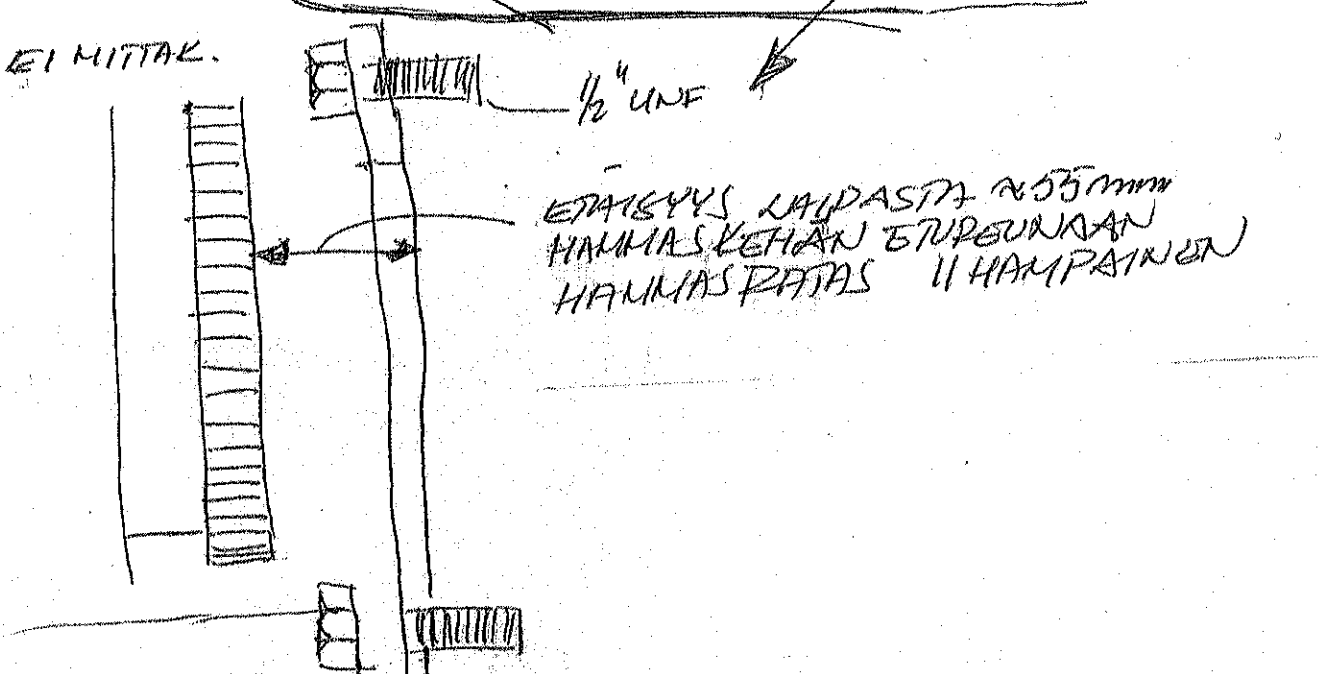 EI MITTAK.
1/2" UNF
ETÄISYYS LAIPASTA ≈55mm
HAMMASKEHÄN ETUREUNAAN
HAMMASRATAS 11 HAMPAINEN